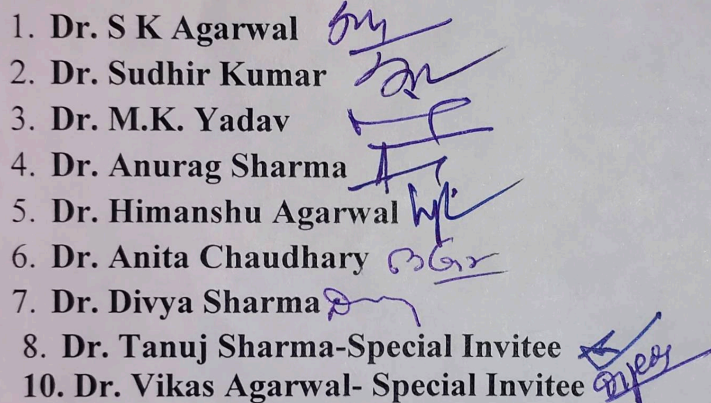 1. Dr. S K Agarwal
2. Dr. Sudhir Kumar
3. Dr. M.K. Yadav
4. Dr. Anurag Sharma
5. Dr. Himanshu Agarwal
6. Dr. Anita Chaudhary
7. Dr. Divya Sharma
8. Dr. Tanuj Sharma-Special Invitee
10. Dr. Vikas Agarwal- Special Invitee